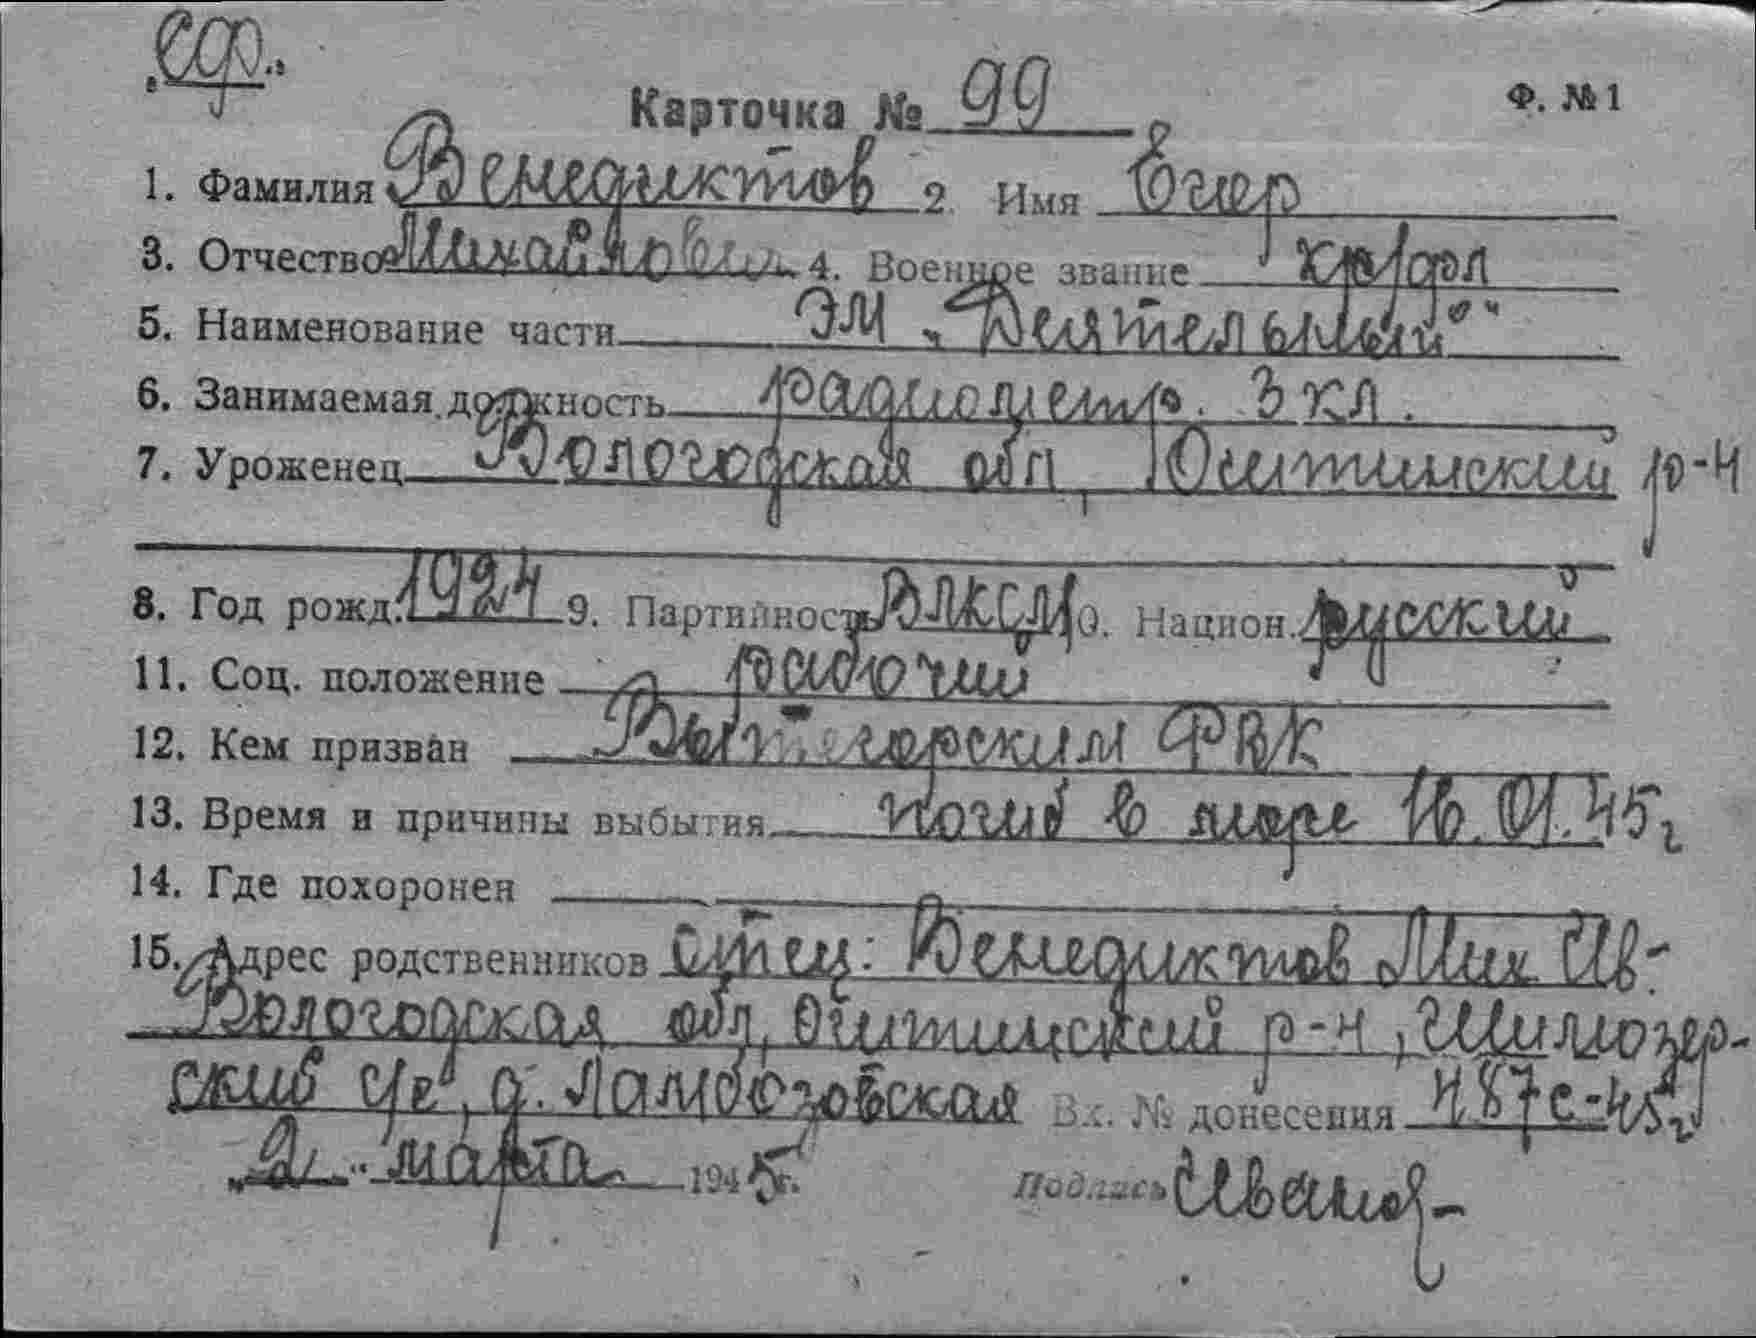 Сф.
Карточка № 99 Ф. №1
1. Фамилия Венедиктов 2. Имя Егор
3. Отчество Михайлович 4. Военное звание кр/фл
5. Наименование части ЭМ „Деятельный"
6. Занимаемая должность радиометр. 3 кл.
7. Уроженец Вологодская обл, Оштинский р-н
8. Год рожд. 1924 9. Партийность ВЛКСМ 10. Национ. русский
11. Соц. положение рабочий
12. Кем призван Вытегорским РВК
13. Время и причины выбытия погиб в море 16.01.45г
14. Где похоронен
15. Адрес родственников Отец: Венедиктов Мих Ив-
Вологодская обл, Оштинский р-н, Шимозер-
ский с/с, д. Ламбозовская Вх. № донесения 487с-45г
„2" марта 1945г. Подпись Иванов